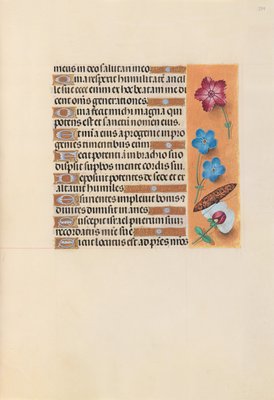 meus in deo salutari meo
Quia respexit humilitatē ancil
le sue ecce enim ex hoc beatam me di
cent oms generationes.
Quia fecit michi magna qui
potens est et sanctū nomen eius.
Et mīa eius a progenie in pro
genies timentibus eum
Fecit potentiā in brachio suo
dispsit supbos mente cordis sui.
Deposuit potentes de sede et ex
altauit humiles
Esurientes impleuit bonis et
diuites dimisit inanes
Suscepit israel puerum suū
recordatus mīe sue
Sicut locutus est ad patres nros